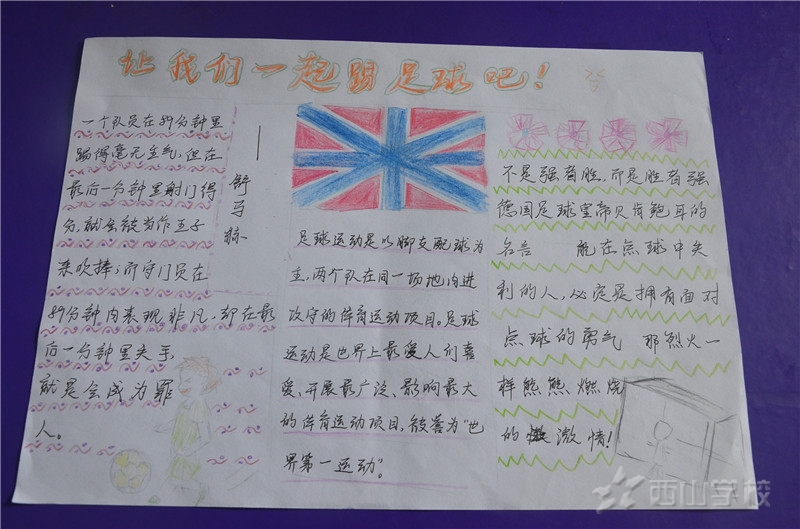 让我们一起踢足球吧!
一个队员在89分钟里
踢得毫无生气,但在
最后一分钟里射门得
分,就会被当作王子
来吹捧;而守门员在
89分钟内表现非凡,却在最
后一分钟里失手,
就是会成为罪
人。
——舒马赫
足球运动是以脚支配球为
主,两个队在同一场地内进
攻守的体育运动项目。足球
运动是世界上最爱人们喜
爱、开展最广泛、影响最大
的体育运动项目,被誉为“世
界第一运动”。
不是强者胜,而是胜者强
德国足球皇帝贝肯鲍耳的
名言 能在点球中失
利的人,必定是拥有面对
点球的勇气 那烈火一
样熊熊燃烧
的激情!
西山学校